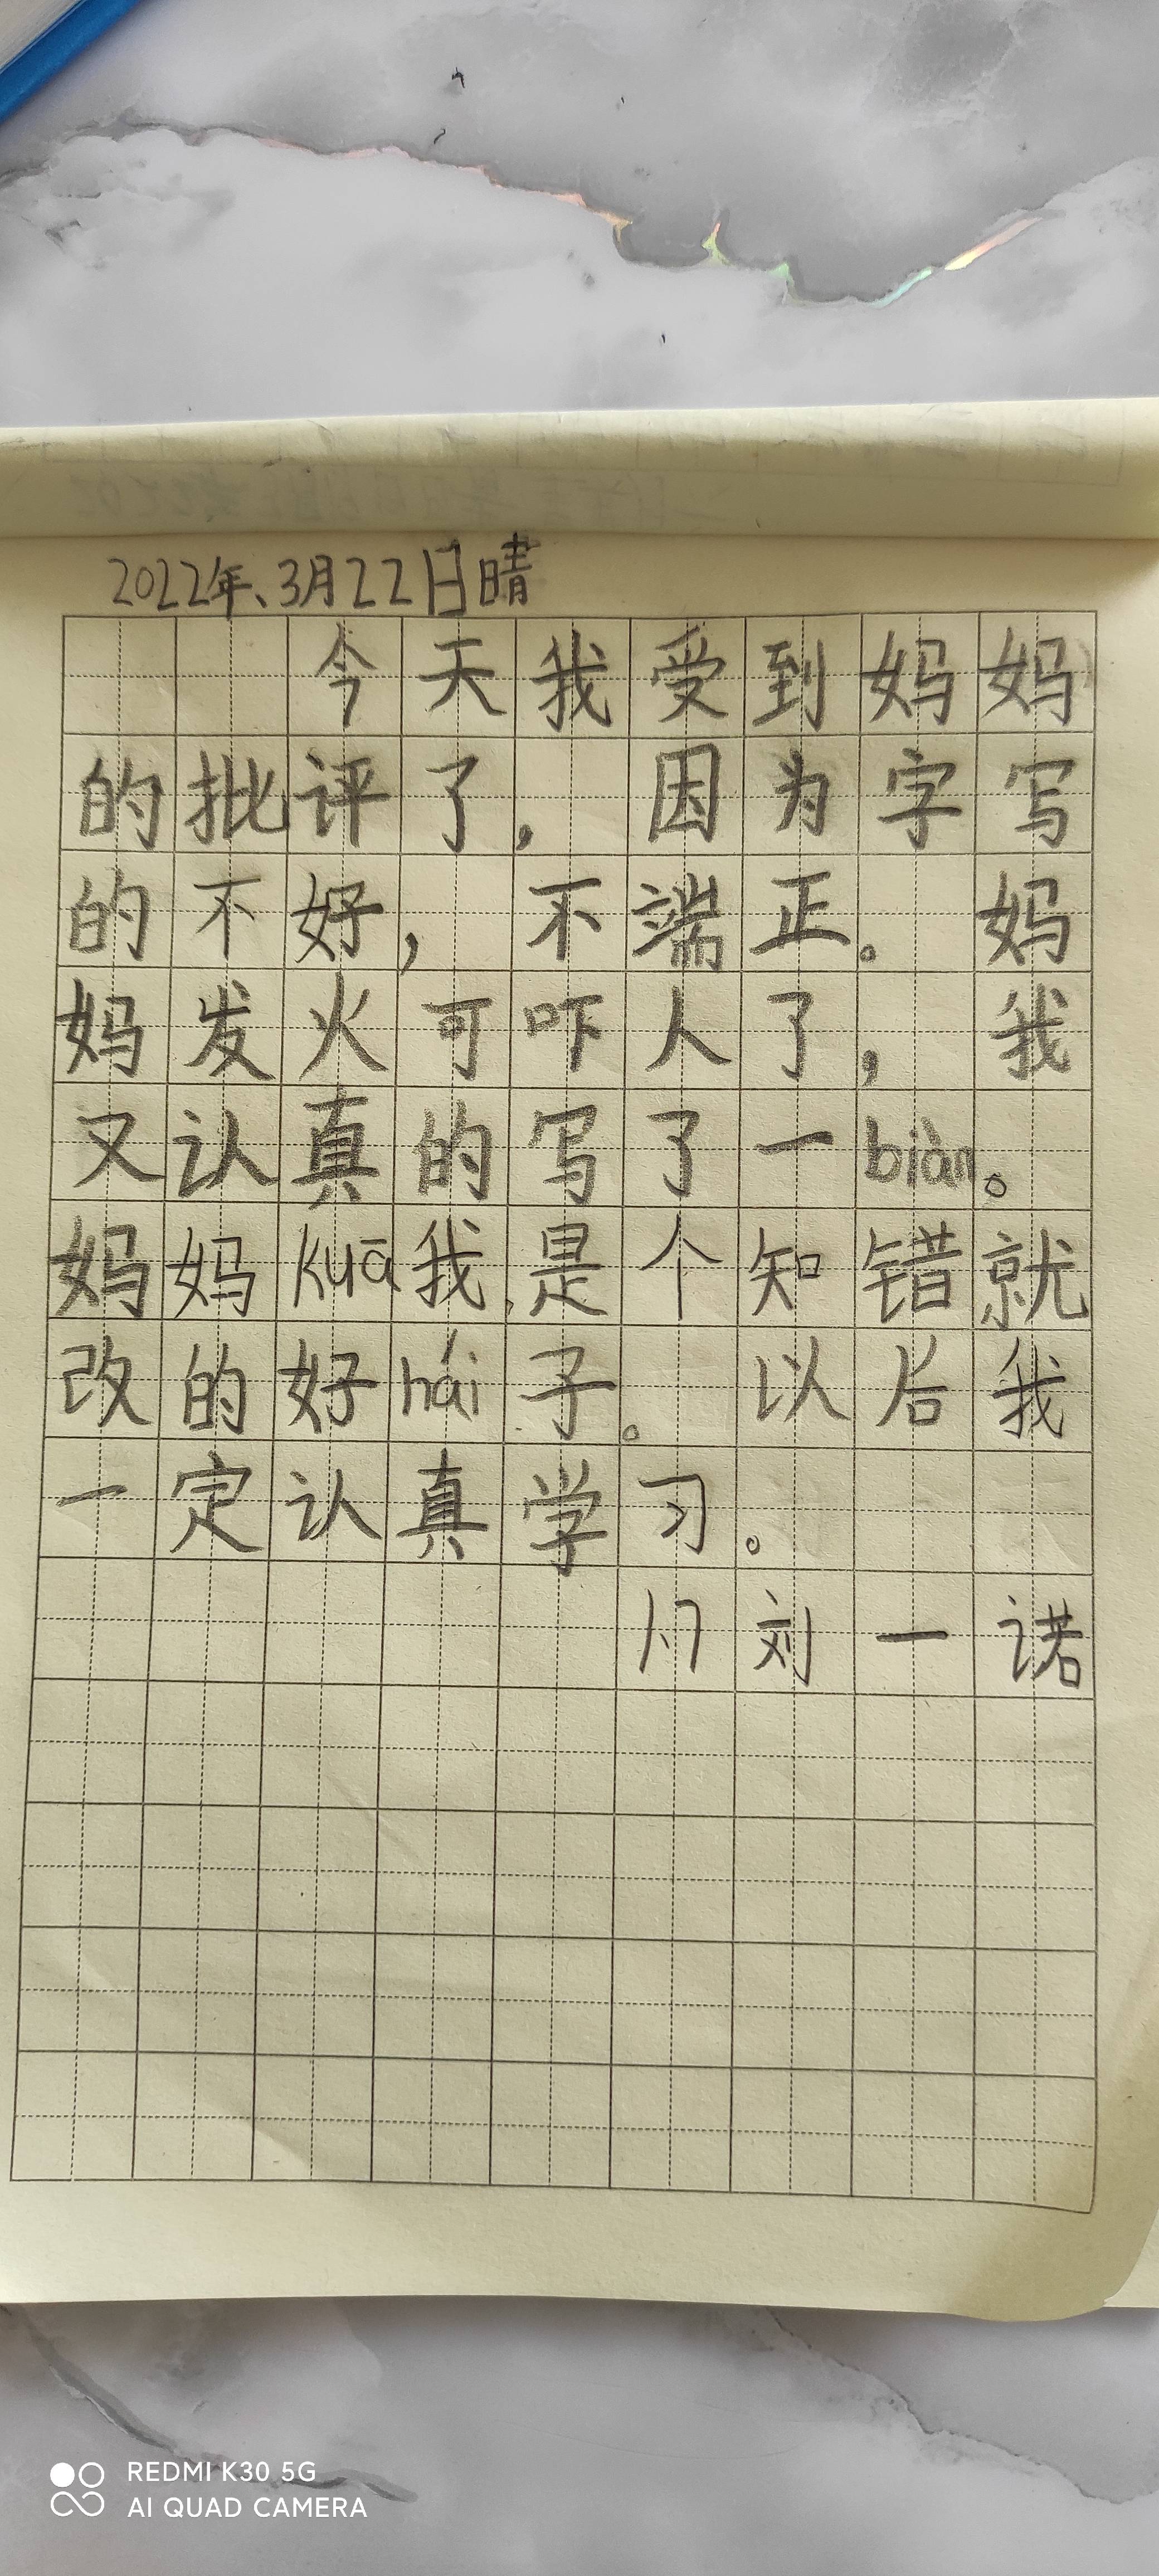 2022年、3月22日晴
今天我受到妈妈
的批评了，因为字写
的不好，不端正。妈
妈发火可吓人了，我
又认真的写了一biàn。
妈妈kuā我是个知错就
改的好hái子。以后我
一定认真学习。
刘一诺
REDMI K30 5G
AI QUAD CAMERA